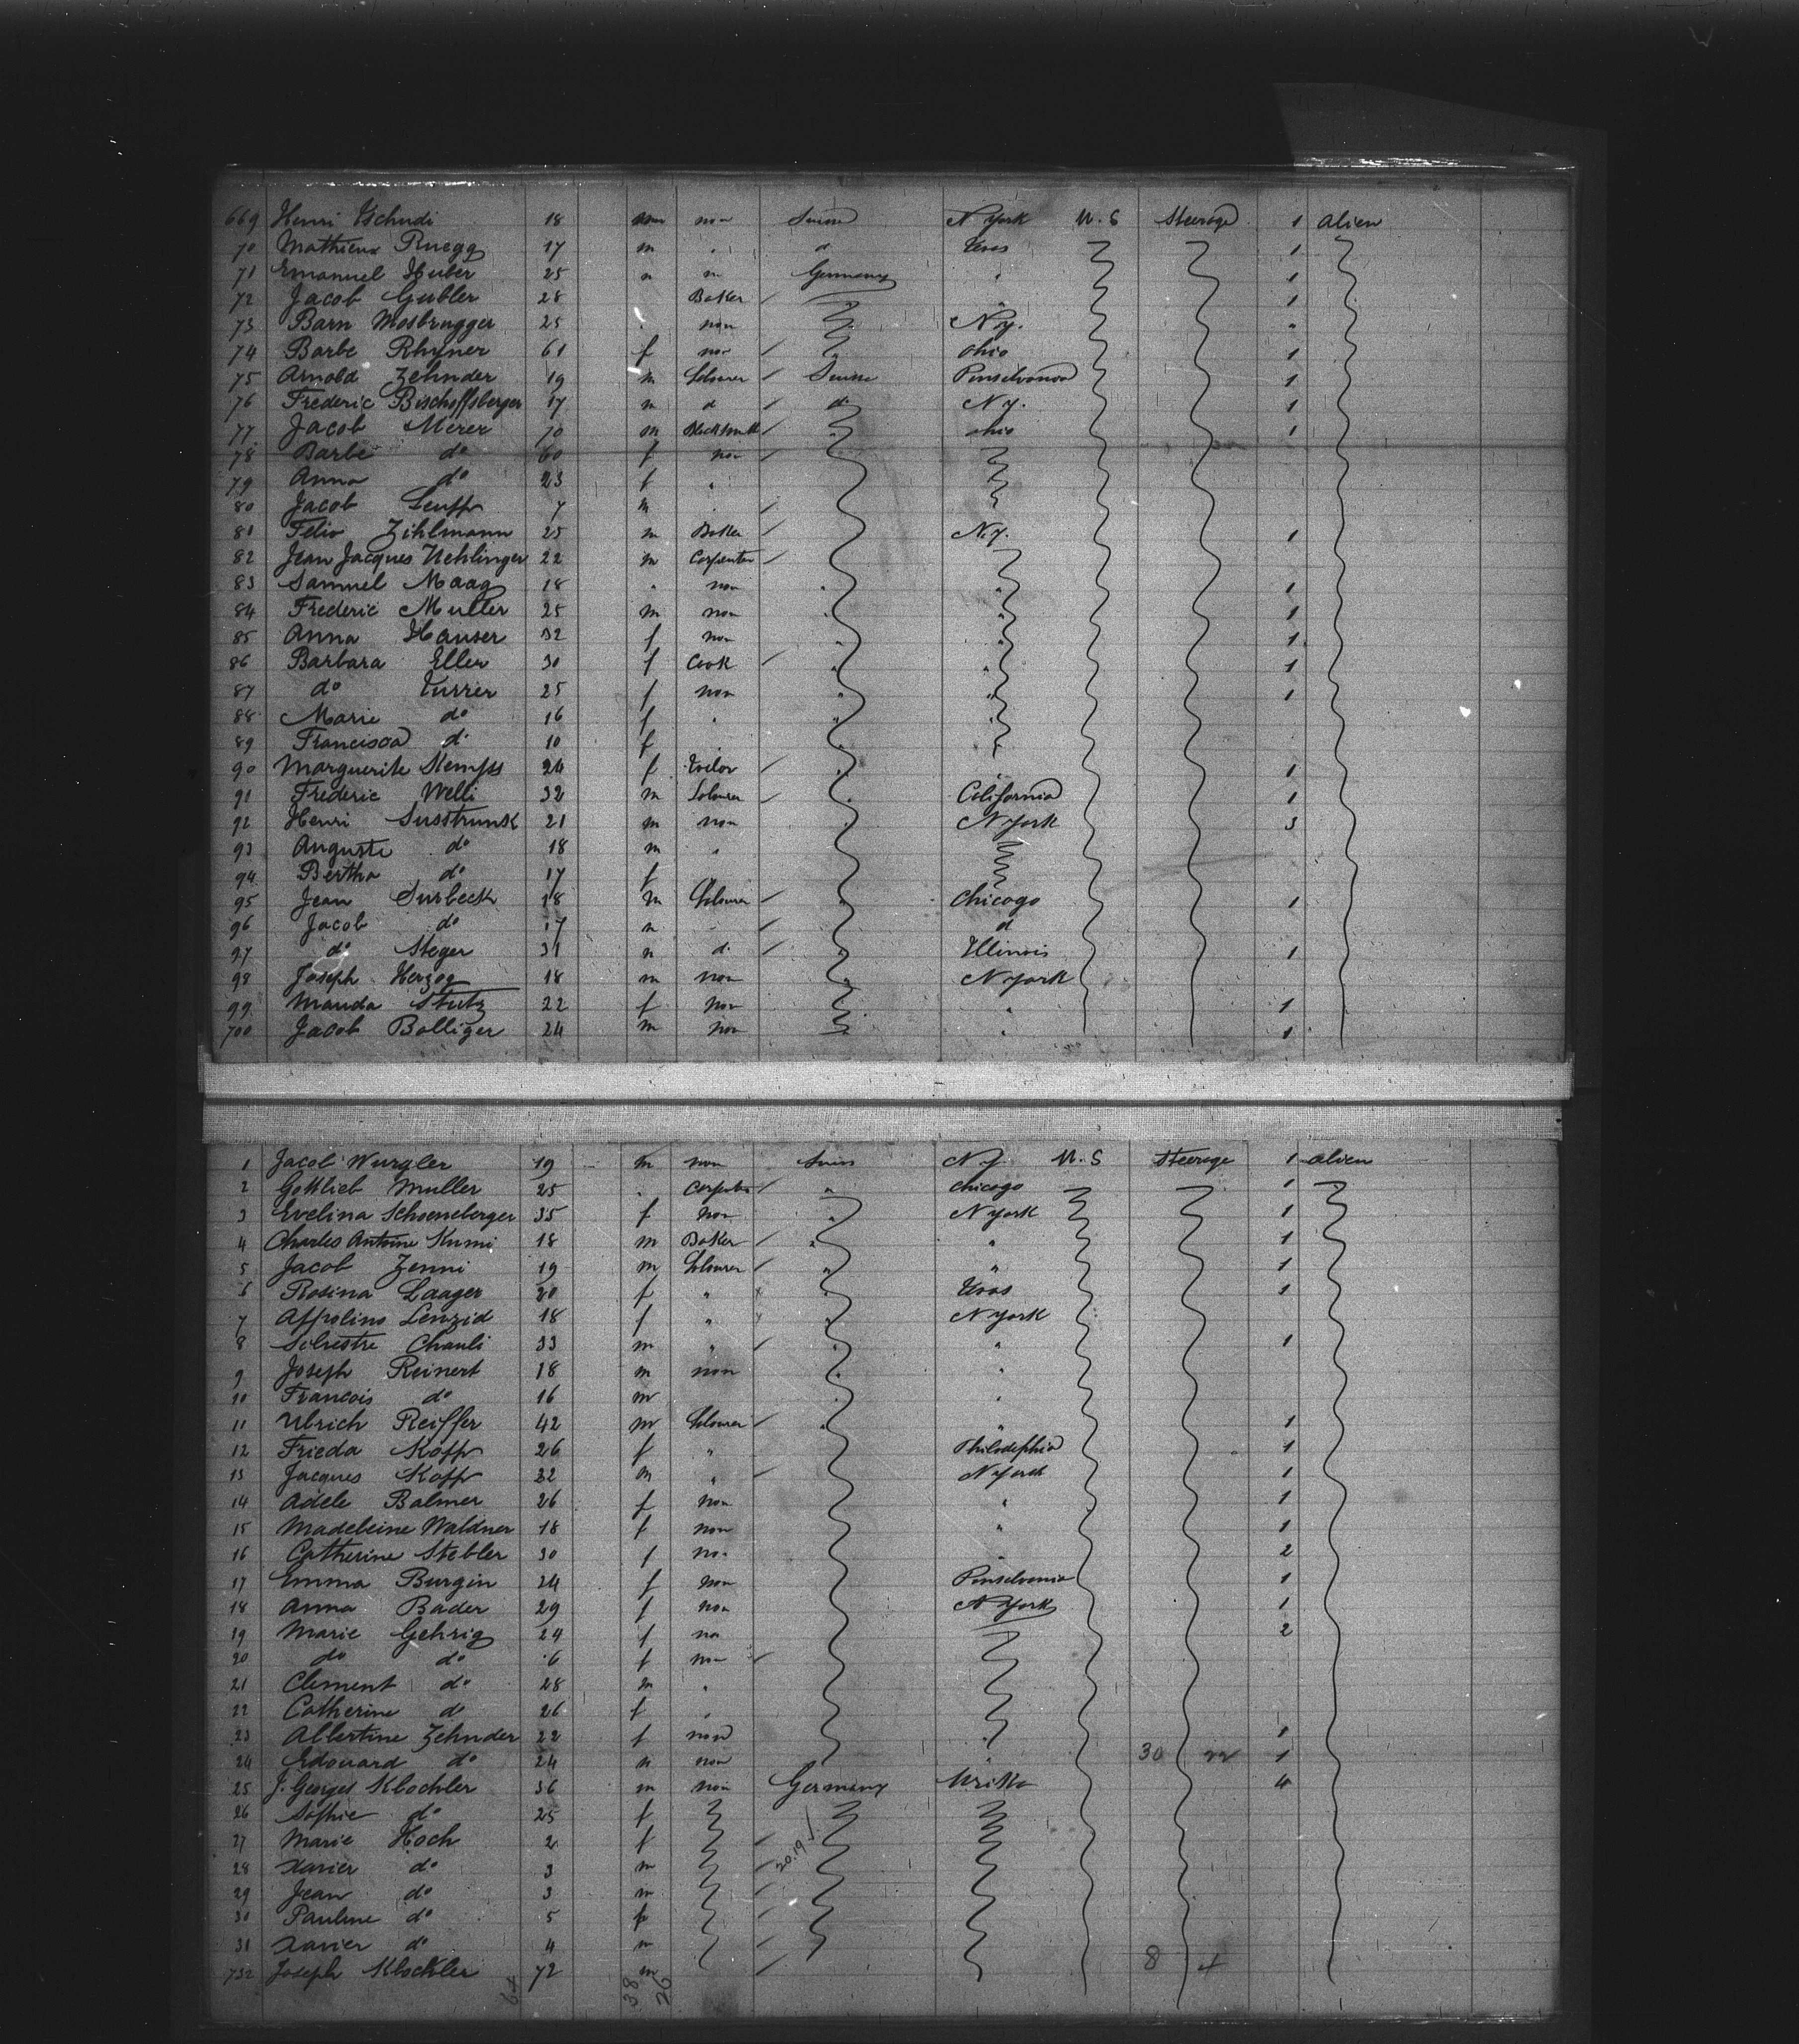 669 Henri Tschudi 18 m non Suisse N York U.S Steerage 1 alien
70 Mathieux Ruegg 17 m " d Texas 1
71 Emanuel Huber 25 m n Germany " 1
72 Jacob Gubler 28 Baker " 1
73 Barn Mosbrugger 25 non N y. "
74 Barbe Rhyner 61 f non ohio 1
75 Arnold Zehnder 19 m Labourer Suisse Pensilvania 1
76 Frederic Bischoffsberger 17 m d do N y. 1
77 Jacob Merer 70 m Blacksmith " ohio 1
78 Barbe do 60 f non
79 Anna do 23 f "
80 Jacob Senff 7 m "
81 Felix Zihlmann 25 m Baker N.y. 1
82 Jean Jacques Uehlinger 22 m Carpenter
83 Samuel Maag 18 " non " " 1
84 Frederic Muller 25 m non " " 1
85 Anna Hauser 32 f non " " 1
86 Barbara Eller 30 f Cook " " 1
87 do Furrer 25 f non " " 1
88 Marie do 16 f " " "
89 Francisca do 10 f "
90 Marguerite Kempf 24 f Tailor " 1
91 Frederic Welli 32 m Labourer " California 1
92 Henri Susstrunk 21 m non " N York 3
93 Auguste do 18 m "
94 Bertha do 17 f
95 Jean Surbeck 18 m Labourer " Chicago 1
96 Jacob do 17 m " d
97 do Steger 31 m d " Illinois 1
98 Joseph Herzog 18 m non " N York
99 Manda Stutz 22 f non " 1
700 Jacob Bolliger 24 m non " 1
1 Jacob Wurgler 19 m non Suiss N.y. U.S Steerage 1 alien
2 Gottlieb Muller 25 " Carpenter " chicago 1
3 Evelina Schoeneberger 35 f non " N York 1
4 Charles Antoine Kumi 18 m Baker " " 1
5 Jacob Zenni 19 m Labourer " " 1
6 Rosina Laager 20 f " Texas 1
7 Appolina Lenzid 18 f " " N York
8 Silvestre Chauli 33 m " " " 1
9 Joseph Reinert 18 m non " "
10 Francois do 16 m " "
11 Ulrich Reiffer 42 m Labourer " " 1
12 Frieda Kopp 26 f " Philadephia 1
13 Jacques Kopp 22 m " N York 1
14 Adele Balmer 26 f non " 1
15 Madeleine Waldner 18 f non " 1
16 Catherine Stebler 30 f non " 2
17 Emma Burgin 24 f non Pensilvania 1
18 Anna Bader 29 f non N York 1
19 Marie Gehrig 24 f non 2
20 do do 6 f non
21 Clement do 28 m "
22 Catherine do 26 f "
23 Albertine Zehnder 22 f non " 1
24 Edouard do 24 m non " 30 1
25 J. Georges Klochler 36 m non Germany 4
26 Sophie do 25 f
27 Marie Hoch 2 f
28 Xavier do 3 m
29 Jean do 3 m
30 Pauline do 5 f
31 Xavier do 4 m 8
732 Joseph Klochler 72 m
64 38 26